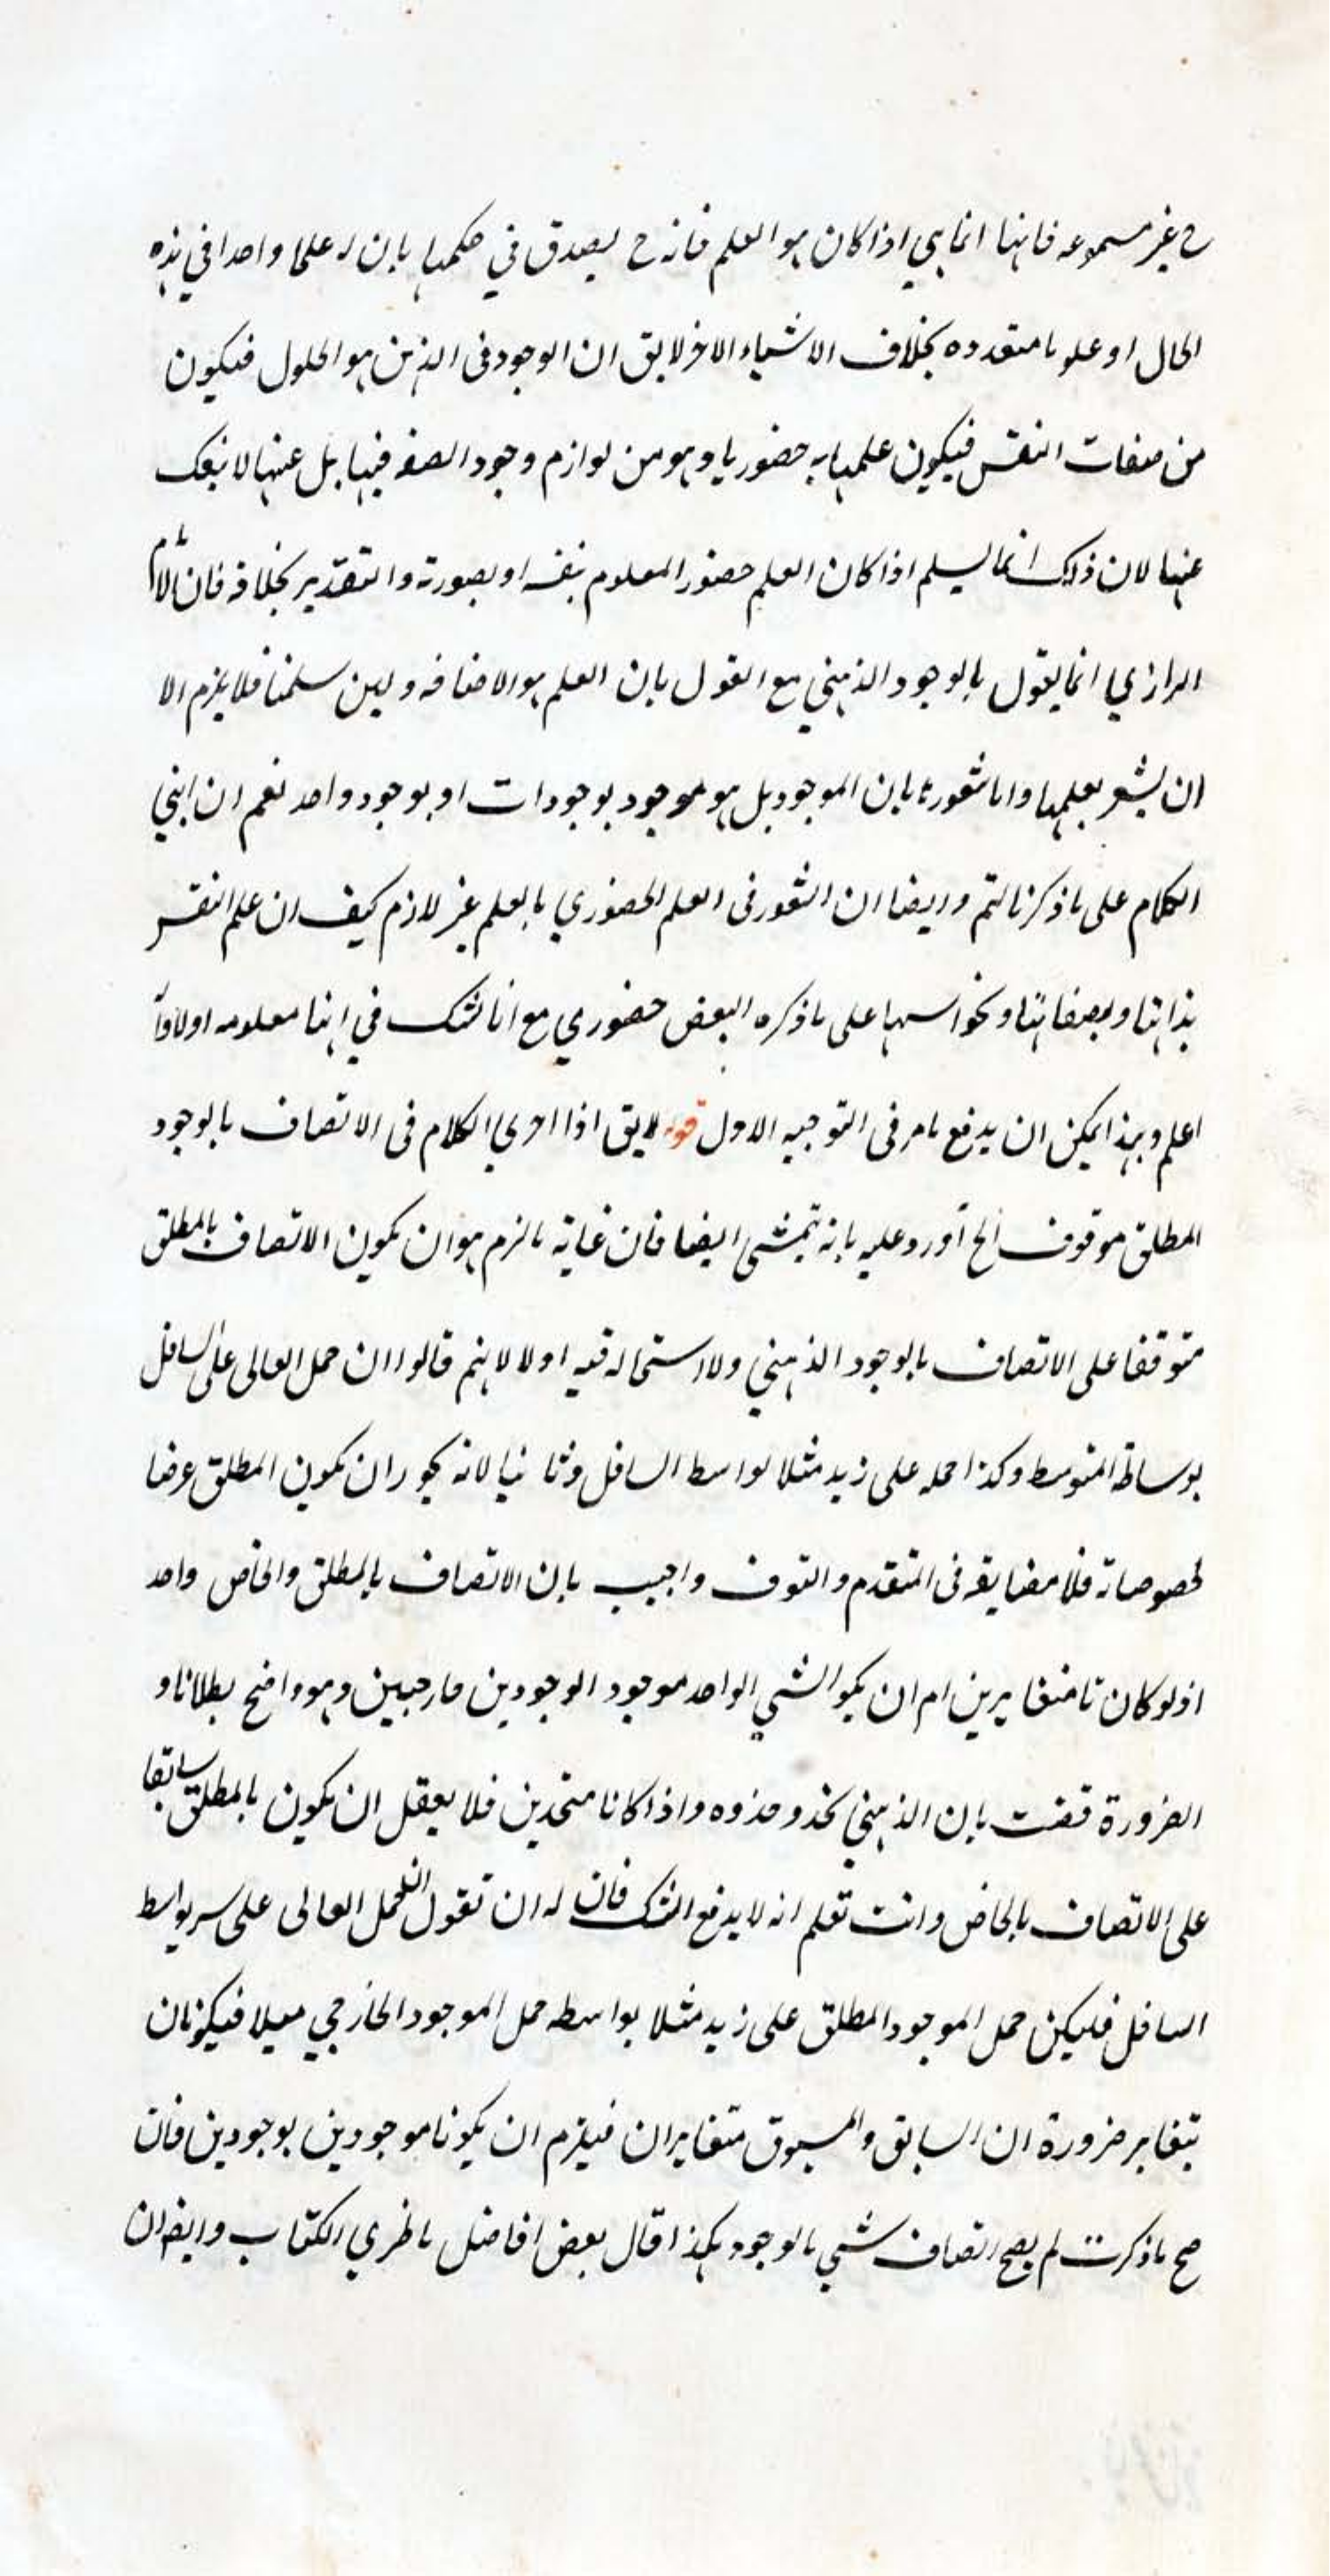 ح غير مسموعه فانها انما هي اذا كان هو العلم فانه ح يصدق في حكمها بان له علما واحدا في هذه
الحال او علوما متعدده بخلاف الاشياء الاخر لايق ان الوجود فى الذهن هو الحلول فيكون
من صفات النفس فيكون علمها به حضوريا وهو من لوازم وجود الصفه فيها بل عنها لا ينفك
عنها لان ذلك انما يسلم اذا كان العلم حضور المعلوم بنفسه او بصورته والتقدير بخلافه فان الامام
الرازي انما يقول بالوجود الذهني مع القول بان العلم هو الاضافه ولين سلمنا فلا يلزم الا
ان يشعر بعلمها واما شعورنا بان الموجود بل هو موجود بوجودات او بوجود واحد نعم ان ابني
الكلام على ما ذكرنا لتم وايضا ان الشعور فى العلم الحضوري بالعلم غير لازم كيف ان علم النفس
بذاتها وبصفاتها وبحواسها على ما ذكره البعض حضوري مع انا نشك في انها معلومه اولا وا
اعلم وبهذا يمكن ان يدفع ما مر فى التوجيه الاول قوله لايق اذا اجري الكلام فى الاتصاف بالوجود
المطلق موقوف الخ آورد عليه بانه يتمشى ايضا فان غاية ما لزم هو ان يكون الاتصاف بالمطلق
متوقفا على الاتصاف بالوجود الذهني ولا استحاله فيه اولا لانهم قالوا ان حمل العالى على السافل
بوساطة المتوسط وكذا حمله على زيد مثلا بواسط السافل وثانيا لانه يجوز ان يكون المطلق عرضا
لخصوصاته فلا مضايقه فى التقدم والتوقف واجيب بان الاتصاف بالمطلق والخاص واحد
اذ لو كان تا متغايرين ام ان يكو الشي الواحد موجود الوجودين خارجيين وهو واضح بطلانا و
الضرورة قضت بان الذهني يحذو حذوه واذا كانا متحدين فلا يعقل ان يكون بالمطلق سابقا
على الاتصاف بالخاص وانت تعلم انه لا يدفع الشك فان له ان تقول ان حمل العالى على سر بواسط
السافل فليكن حمل الموجود المطلق على زيد مثلا بواسطه حمل الموجود الخارجي فيكونان
بتغاير ضرورة ان السابق والمسبوق متغايران فيلزم ان يكونا موجودين بوجودين فان
صح ما ذكرت لم يصح اتصاف شي بالوجود هكذا قال بعض افاضل ناظري الكتاب وايض ان